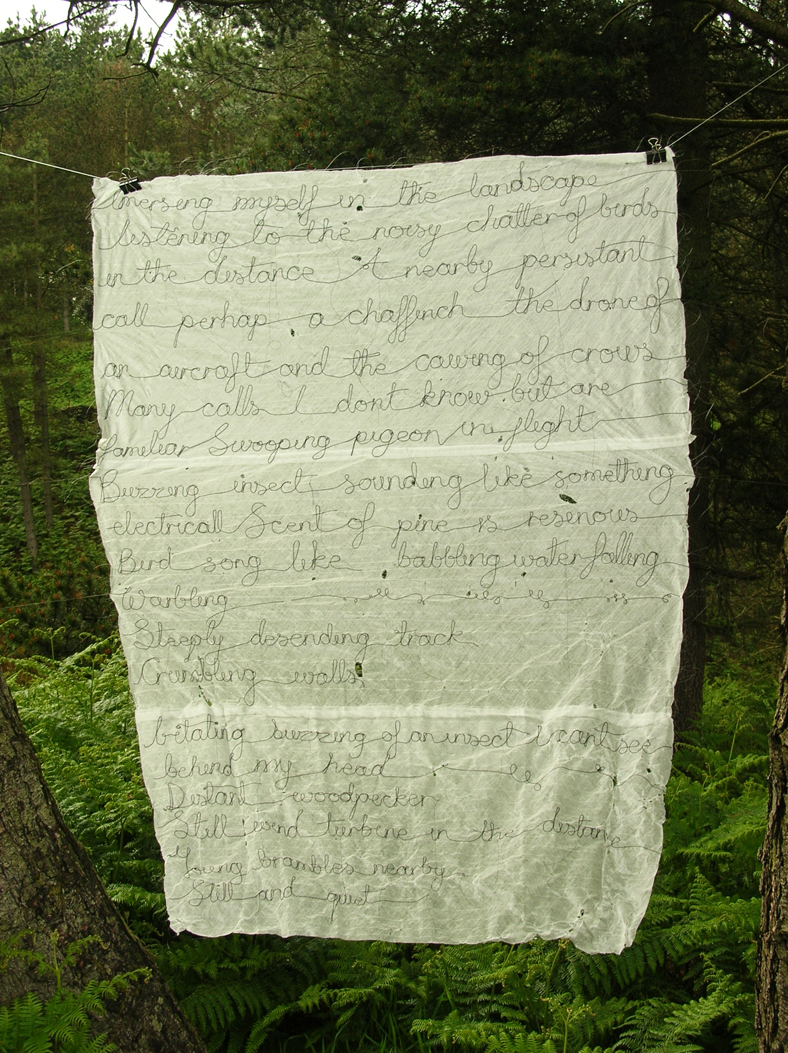 Imerseng myself in the landscape
listening to the noisy chatter of birds
in the distance A nearby persistant
call perhap a chaffinch the drone of
an aircraft and the cawing of crows
Many calls I dont know but are
familiar Swooping pigeon in flight
Buzzing insect sounding like something
electricall Scent of pine is resenous
Bird song like babbling water falling
Warbling
Steeply desending track
Crumbling walls
buzzing of an insect I cant see
behind my head
Distant woodpecker
Still wind turbine in the distance
Young brambles nearby
Still and quiet